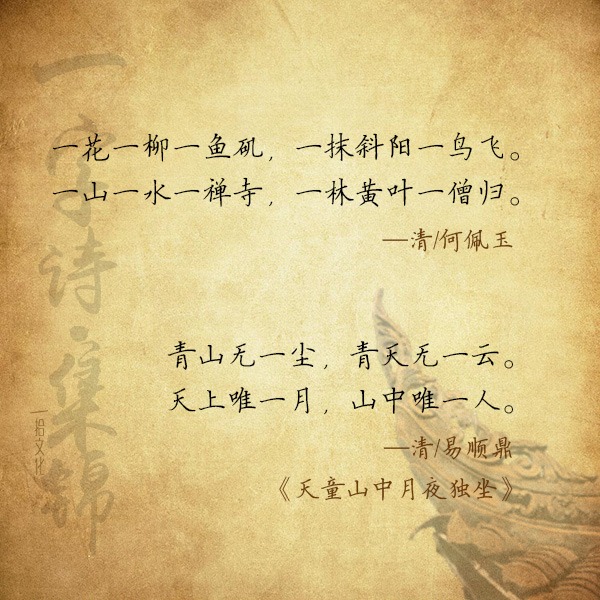 一字诗集锦
一拾文化
一花一柳一鱼矶，一抹斜阳一鸟飞。
一山一水一禅寺，一林黄叶一僧归。
—清/何佩玉
青山无一尘，青天无一云。
天上唯一月，山中唯一人。
—清/易顺鼎
《天童山中月夜独坐》